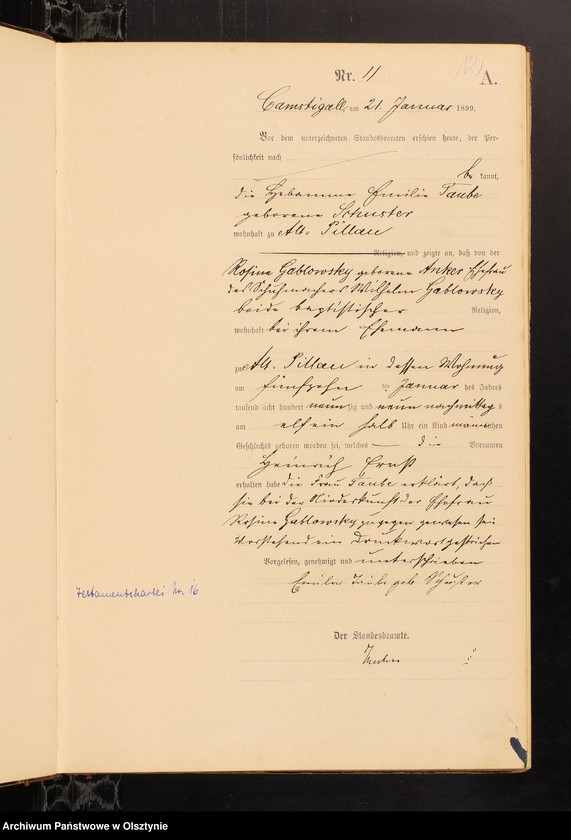 Nr. 11
A.
Camstigall, am 21. Januar 1899.
Vor dem unterzeichneten Standesbeamten erschien heute, der Per-
sönlichkeit nach
be kannt,
die Hebamme Emilie Taube
geborene Schuster
wohnhaft zu Alt-Pillau
Religion, und zeigte an, daß von der
Rosine Gablowsky geborene Anker Ehefrau
des Schuhmachers Wilhelm Gablowsky
beide baptistischer Religion,
wohnhaft bei ihrem Ehemann
zu Alt-Pillau in dessen Wohnung
am fünfzehn ten Januar des Jahres
tausend acht hundert neunzig und neun nachmittags
um elf ein halb Uhr ein Kind männlichen
Geschlechts geboren worden sei, welches die Vornamen
Heinrich Ernst
erhalten habe die Frau Taube erklärt, daß
sie bei der Niederkunft der Ehefrau
Rosine Gablowsky zugegen gewesen sei
Vorstehend ein Druckwort gestrichen
Vorgelesen, genehmigt und unterschrieben
Emilie Taube geb Schuster
Testamentskartei Nr. 16
Der Standesbeamte.
Archiwum Państwowe w Olsztynie